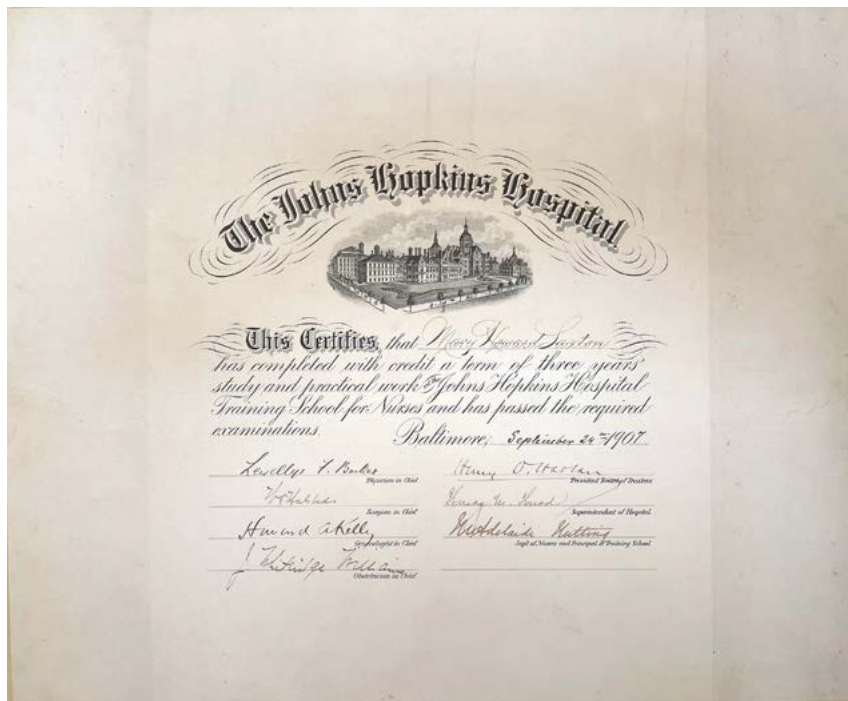 The Johns Hopkins Hospital
This Certifies, that Mary Howard Saxton
has completed with credit a term of three years'
study and practical work Johns Hopkins Hospital
Training School for Nurses and has passed the required
examinations.
Baltimore, September 24th 1907
Lewellys F. Barker
Physician in Chief
Surgeon in Chief
Howard A Kelly
Gynecologist in Chief
J Whitridge Williams
Obstetrician in Chief
Henry D. Harlan
President Board of Trustees
Henry M. Hurd
Superintendent of Hospital
M Adelaide Nutting
Supt of Nurses and Principal of Training School